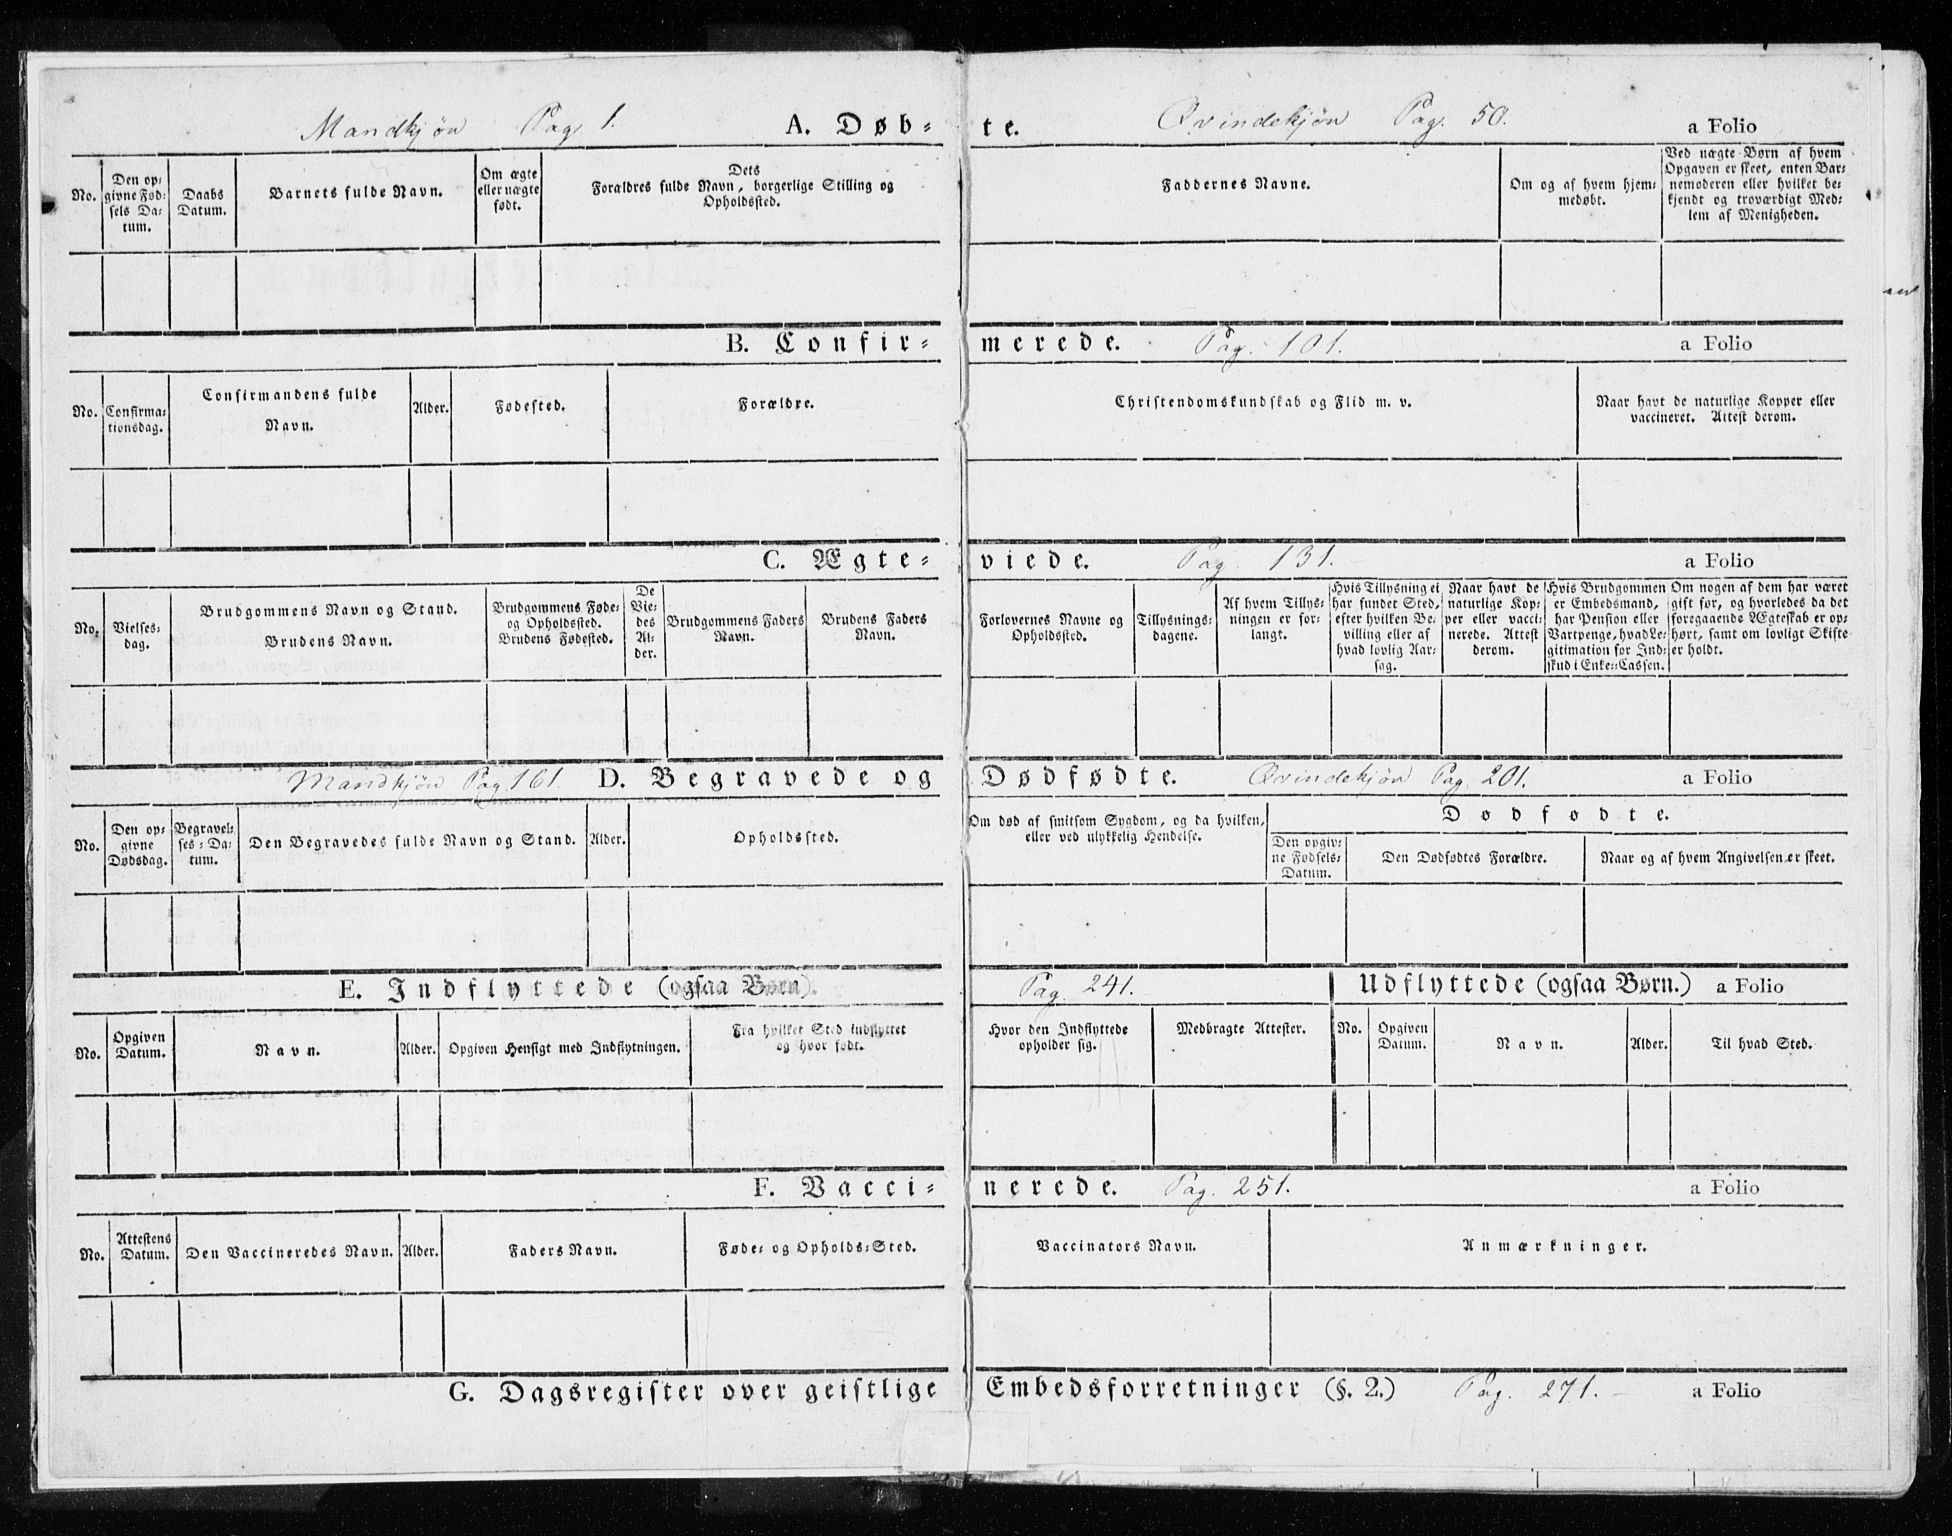 Mandkjøn Pag. 1. A. Døb- te. Qvindekjøn Pag. 50. a Folio
No.
Den op-
givne Fød-
sels Da-
tum.
Daabs
Datum.
Barnets fulde Navn.
Om ægte
eller uægte
født.
Dets
Forældres fulde Navn, borgerlige Stilling og
Opholdssted.
Faddernes Navne.
Om og af hvem hjem-
medøbt.
Ved uægte Børn af hvem
Opgaven er skeet, enten Bar-
nemoderen eller hvilket be-
kjendt og troværdigt Med-
lem af Menigheden.
B. Confir- merede. Pag. 101. a Folio
No.
Confirma-
tionsdag.
Confirmandens fulde
Navn.
Alder.
Fødested.
Forældre.
Christendomskundskab og Flid m. v.
Naar havt de naturlige Kopper eller
vaccineret. Attest derom.
C. Ægte- viede. Pag. 131. a Folio
No.
Vielses-
dag.
Brudgommens Navn og Stand.
Brudens Navn.
Brudgommens Føde-
og Opholdssted.
Brudens Fødested.
De
Vie-
des
Al-
der.
Brudgommens Faders
Navn.
Brudens Faders
Navn.
Forlovernes Navne og
Opholdssted.
Tillysnings-
dagene.
Af hvem Tillys-
ningen er for-
langt.
Hvis Tillysning ei
har fundet Sted,
efter hvilken Be-
villing eller af
hvad lovlig Aar-
sag.
Naar havt de
naturlige Kop-
per eller vacci-
nerede. Attest
derom.
Hvis Brudgommen
er Embedsmand,
har Pension eller
Vartpenge, hvad Le-
gitimation for Ind-
skud i Enke-Cassen.
Om nogen af dem har været
gift før, og hvorledes da det
foregaaende Ægteskab er op-
hørt, samt om lovligt Skifte
er holdt.
Mandkjøn Pag 161. D. Begravede og Dødfødte. Qvindekjøn Pag. 201. a Folio
No.
Den op-
givne
Dødsdag.
Begravel-
ses-Da-
tum.
Den Begravedes fulde Navn og Stand.
Alder.
Opholdssted.
Om død af smitsom Sygdom, og da hvilken,
eller ved ulykkelig Hendelse.
Dødfødte.
Den opgiv-
ne Fødsels-
Datum.
Den Dødfødtes Forældre.
Naar og af hvem Angivelsen er skeet.
E. Indflyttede (ogsaa Børn). Pag. 241. Udflyttede (ogsaa Børn.) a Folio
No.
Opgiven
Datum.
Navn.
Alder.
Opgiven Hensigt med Indflytningen.
Fra hvilket Sted indflyttet
og hvor født.
Hvor den Indflyttede
opholder sig.
Medbragte Attester.
No.
Opgiven
Datum.
Navn.
Alder.
Til hvad Sted.
F. Vacci- nerede. Pag. 251. a Folio
No.
Attestens
Datum.
Den Vaccineredes Navn.
Alder.
Faders Navn.
Føde- og Opholds-Sted.
Vaccinators Navn.
Anmærkninger.
G. Dagsregister over geistlige Embedsforretninger (§. 2.) Pag. 271. a Folio